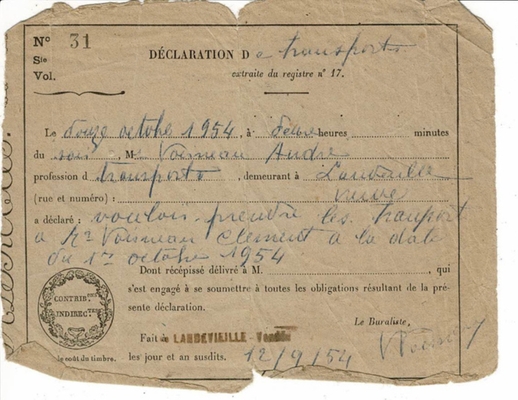 N° 31
Sie
Vol.
DÉCLARATION De transports
extraite du registre n° 17.
Le douze octobre 1954, à heures minutes
du soir, M Voisneau André
profession d transports, demeurant à Landevieille
(rue et numéro) :
a déclaré : vouloir prendre les transport
à Mr Voisneau Clément à la date
du 1er octobre 1954
Dont récépissé délivré à M. , qui
s'est engagé à se soumettre à toutes les obligations résultant de la pré-
sente déclaration.
Le Buraliste,
CONTRIB INDIRECTES
Fait à LANDEVIEILLE - Vendée
les jour et an susdits. 12/9/54
le coût du timbre.